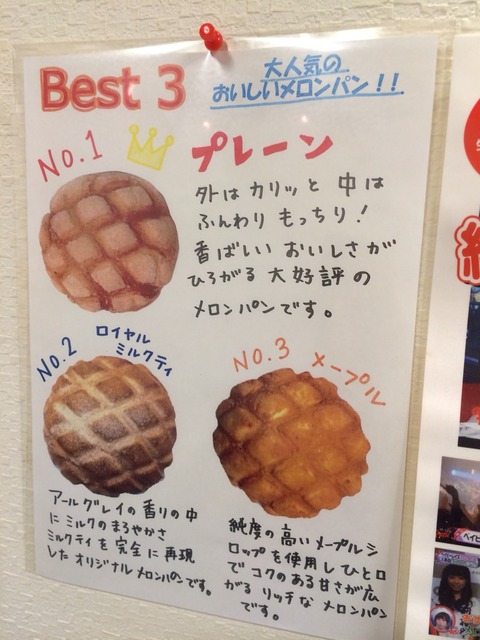 Best 3
大人気の
おいしいメロンパン!!
No.1
プレーン
外はカリッと中は
ふんわりもっちり!
香ばいいおいしさが
ひろがる大好評の
メロンパンです。
No.2
ロイヤル
ミルクティ
アールグレイの香りの中
にミルクのまろやかさ
ミルクティを完全に再現
したオリジナルメロンパンです。
No.3
メープル
純度の高いメープルシ
ロップを使用しひと口
でコクのある甘さが広
がるリッチなメロンパン
です。
ベイビ